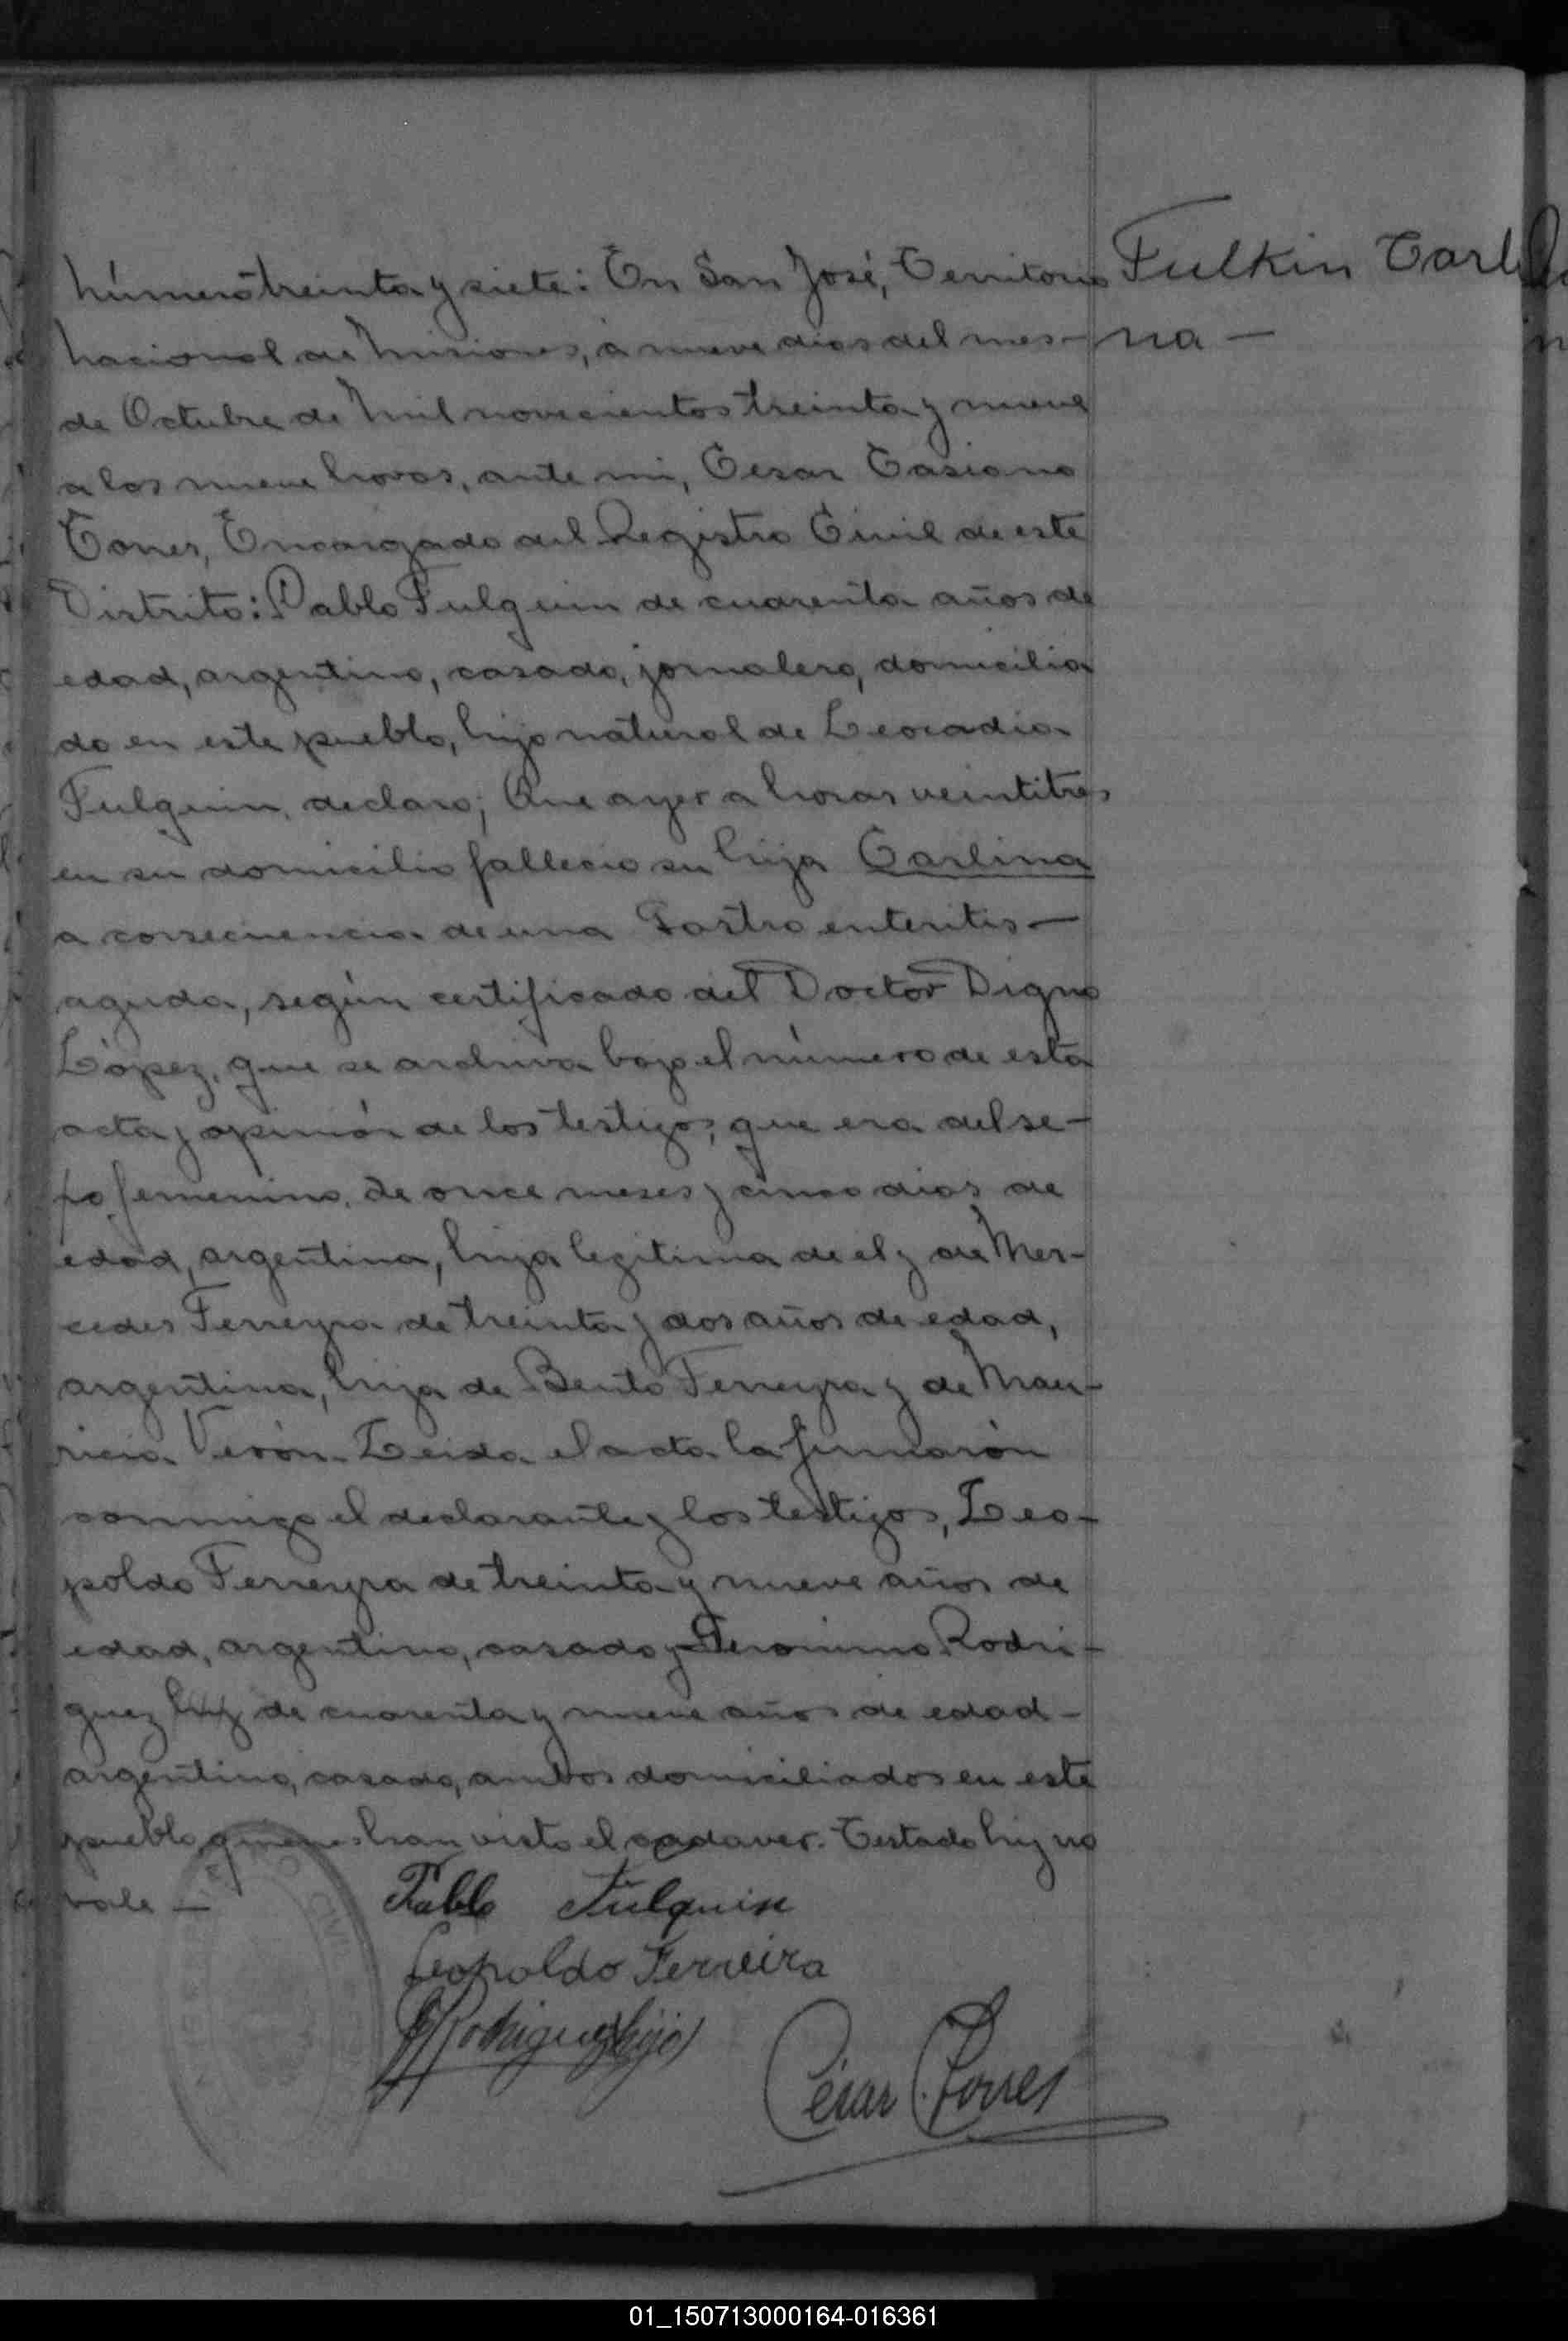 Número treinta y siete: En San José, Territorio
Nacional de Misiones, a nueve dias del mes -
de Octubre de Mil novecientos treinta y nueve
a las nueve horas, ante mi, Cesar Casiano
Torres, Encargado del Registro Civil de este
Distrito: Pablo Fulguin de cuarenta años de
edad, argentino, casado, jornalero, domicilia
do en este pueblo, hijo natural de Leocadia
Fulguin, declaro; Que ayer a horas veintitres
en su domicilio fallecio su hija Carlina
a consecuencia de una Gastro enteritis —
aguda, según certificado del Doctor Digno
López, que se archiva bajo el número de esta
acta y opinión de los testigos; que era del se-
xo femenino, de once meses y cinco dias de
edad, argentina, hija legitima de el y de Mer-
cedes Ferreyra de treinta y dos años de edad,
argentina, hija de Bento Ferreyra y de Mau-
ricia Verón. Leida el acta la firmarón
conmigo el declarante y los testigos, Leo-
poldo Ferreyra de treinta y nueve años de
edad, argentino, casado y Geronimo Rodri-
guez hij de cuarenta y nueve años de edad -
argentino, casado, ambos domiciliados en este
pueblo quienes han visto el cadaver. Testado hij no
vale —
Fulkin Carli
na —
Pablo Fulquin
Leopoldo Ferreira
G Rodriguez (hijo)
César C. Torres
01_150713000164-016361